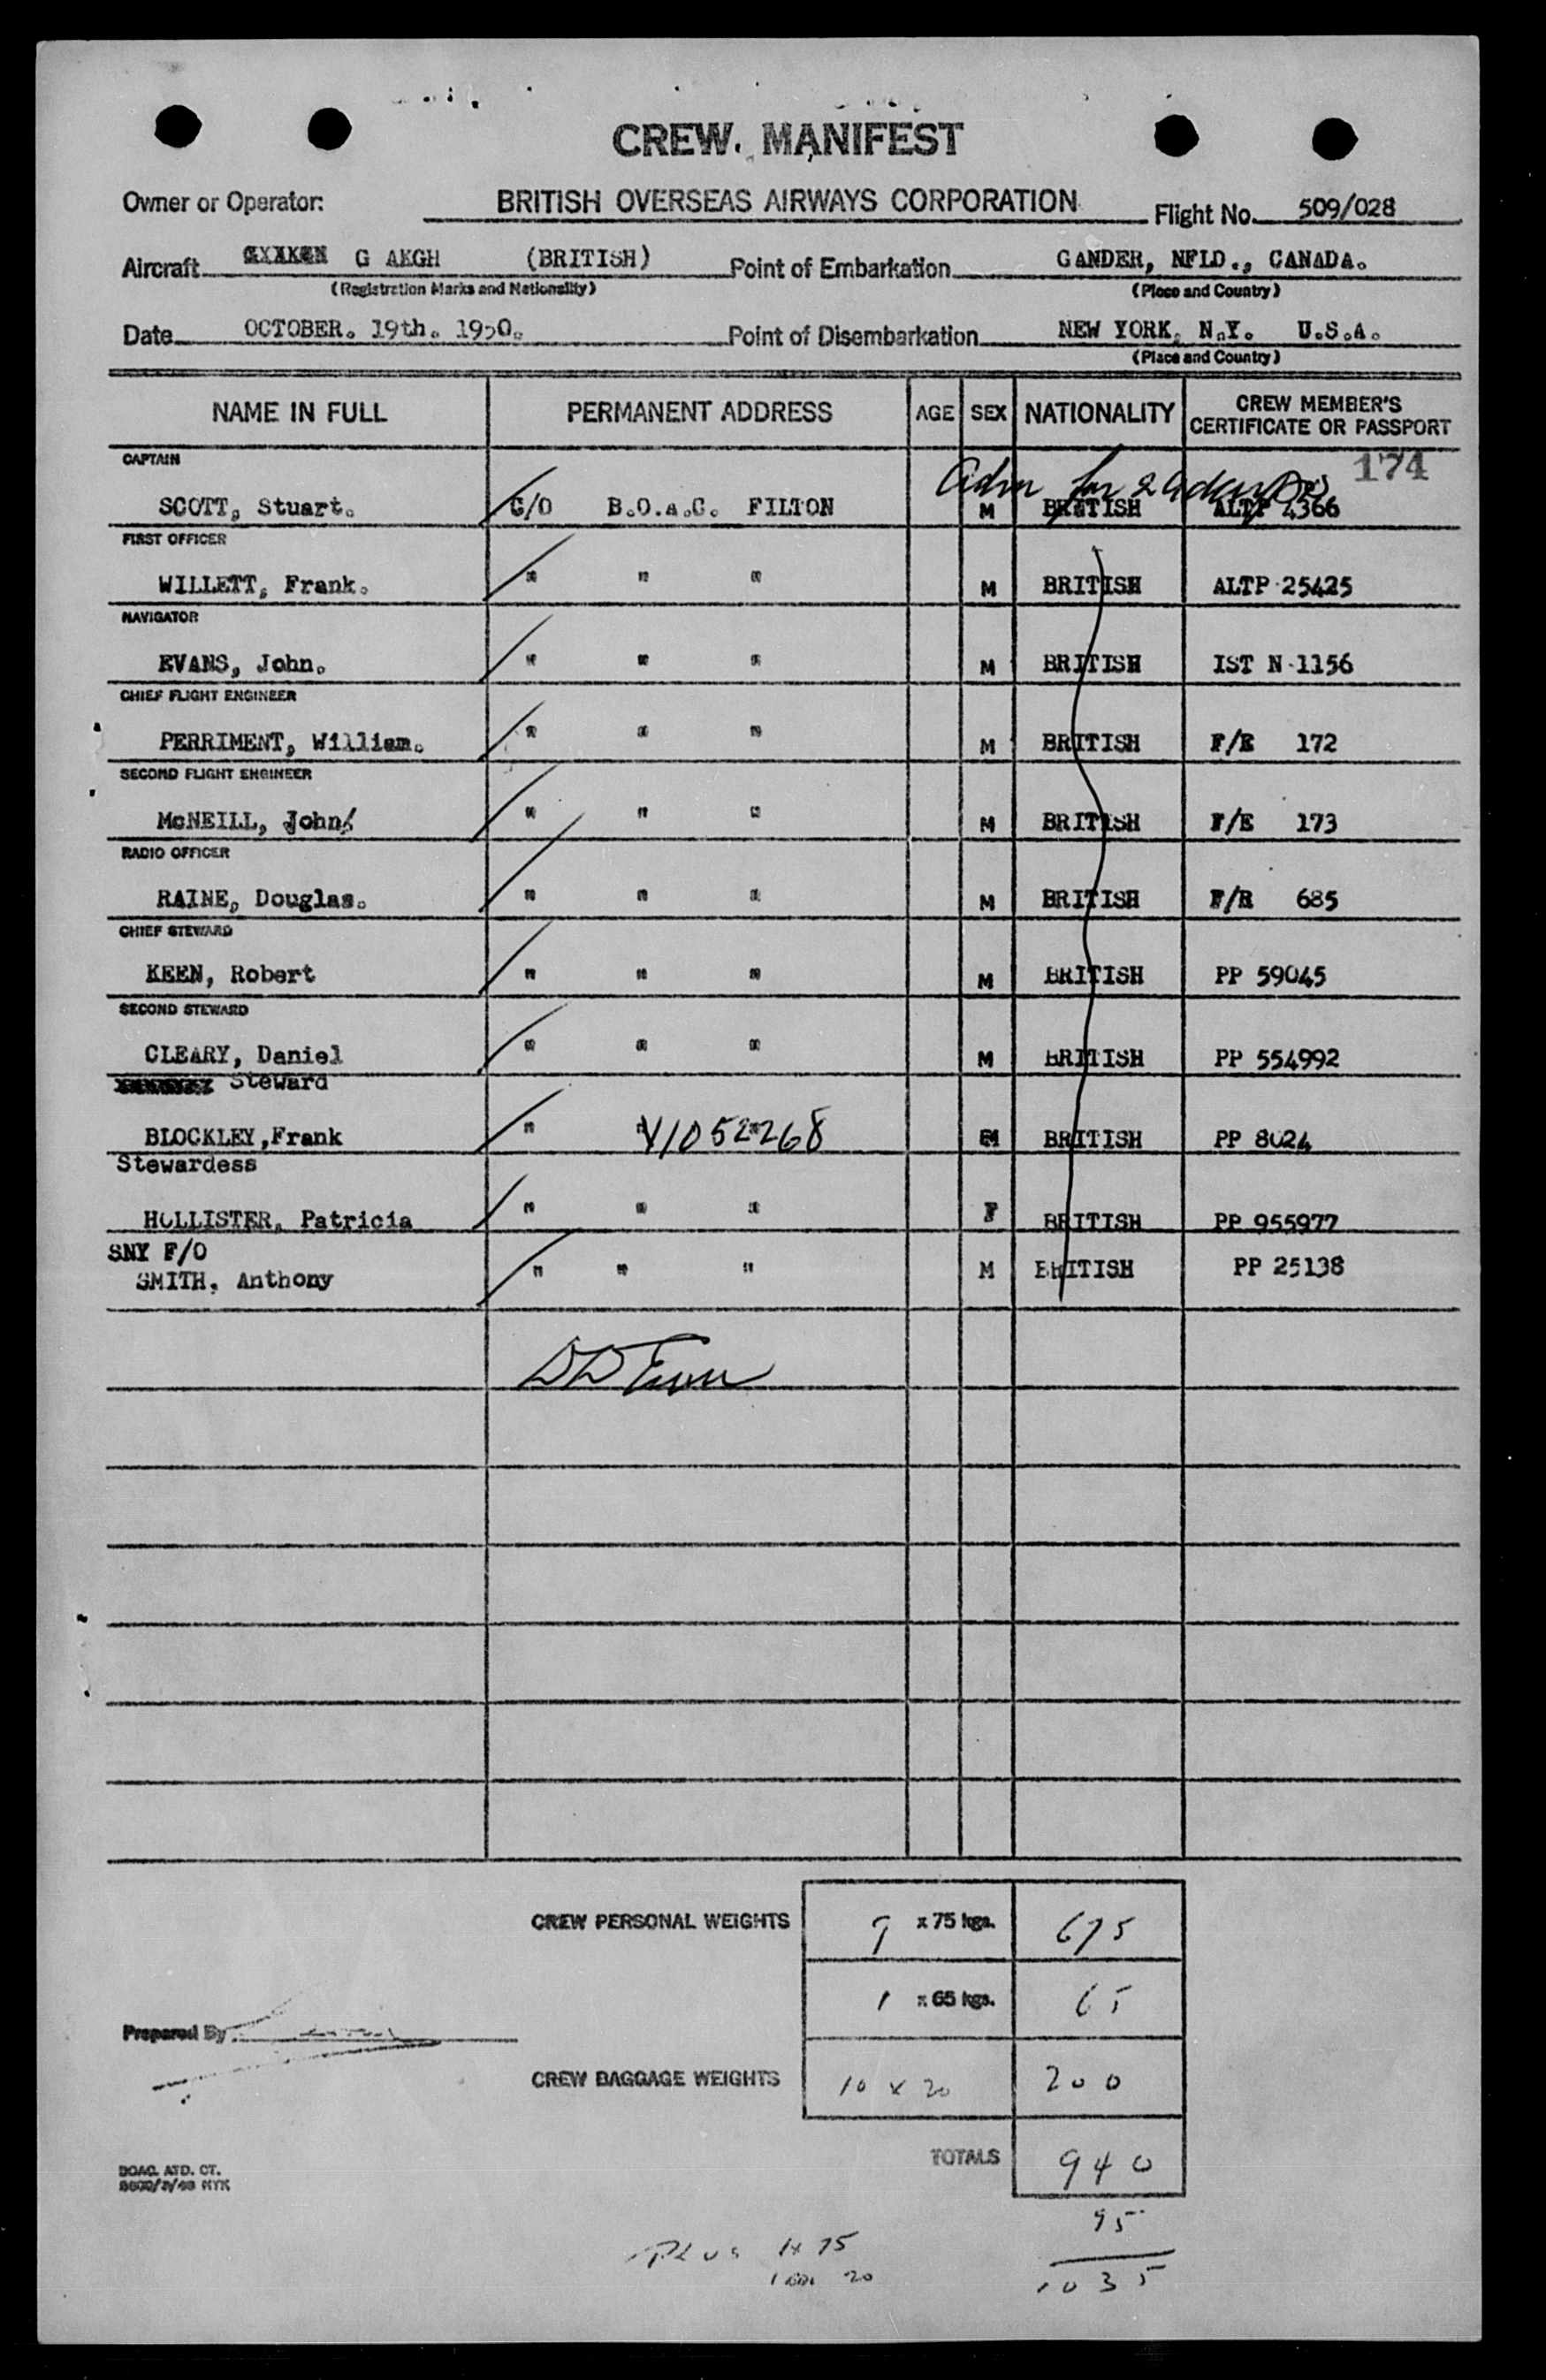 CREW. MANIFEST
Owner or Operator: BRITISH OVERSEAS AIRWAYS CORPORATION Flight No. 509/028
Aircraft G AKGH (BRITISH) Point of Embarkation GANDER, NFLD., CANADA.
(Registration Marks and Nationality) (Place and Country)
Date OCTOBER. 19th. 1950. Point of Disembarkation NEW YORK, N.Y. U.S.A.
(Place and Country)
NAME IN FULL PERMANENT ADDRESS AGE SEX NATIONALITY CREW MEMBER'S CERTIFICATE OR PASSPORT
CAPTAIN 174
Adm for
SCOTT, Stuart. C/O B.O.A.C. FILTON M BRITISH ALTP 4366
FIRST OFFICER
WILLETT, Frank. " " " M BRITISH ALTP 25425
NAVIGATOR
EVANS, John. " " " M BRITISH IST N 1156
CHIEF FLIGHT ENGINEER
PERRIMENT, William. " " " M BRITISH F/E 172
SECOND FLIGHT ENGINEER
McNEILL, John. " " " M BRITISH F/E 173
RADIO OFFICER
RAINE, Douglas. " " " M BRITISH F/R 685
CHIEF STEWARD
KEEN, Robert " " " M BRITISH PP 59045
SECOND STEWARD
CLEARY, Daniel " " " M BRITISH PP 554992
Steward
BLOCKLEY,Frank " " " V1052268 M BRITISH PP 8024
Stewardess
HOLLISTER, Patricia " " " F BRITISH PP 955977
SNY F/O
SMITH, Anthony " " " M BRITISH PP 25138
CREW PERSONAL WEIGHTS 9 x 75 kgs. 675
1 x 65 kgs. 65
Prepared By
CREW BAGGAGE WEIGHTS 10 x 20 200
TOTALS 940
BOAC. ATD. CT.
95
PLUS 1x 75
1 20
1035